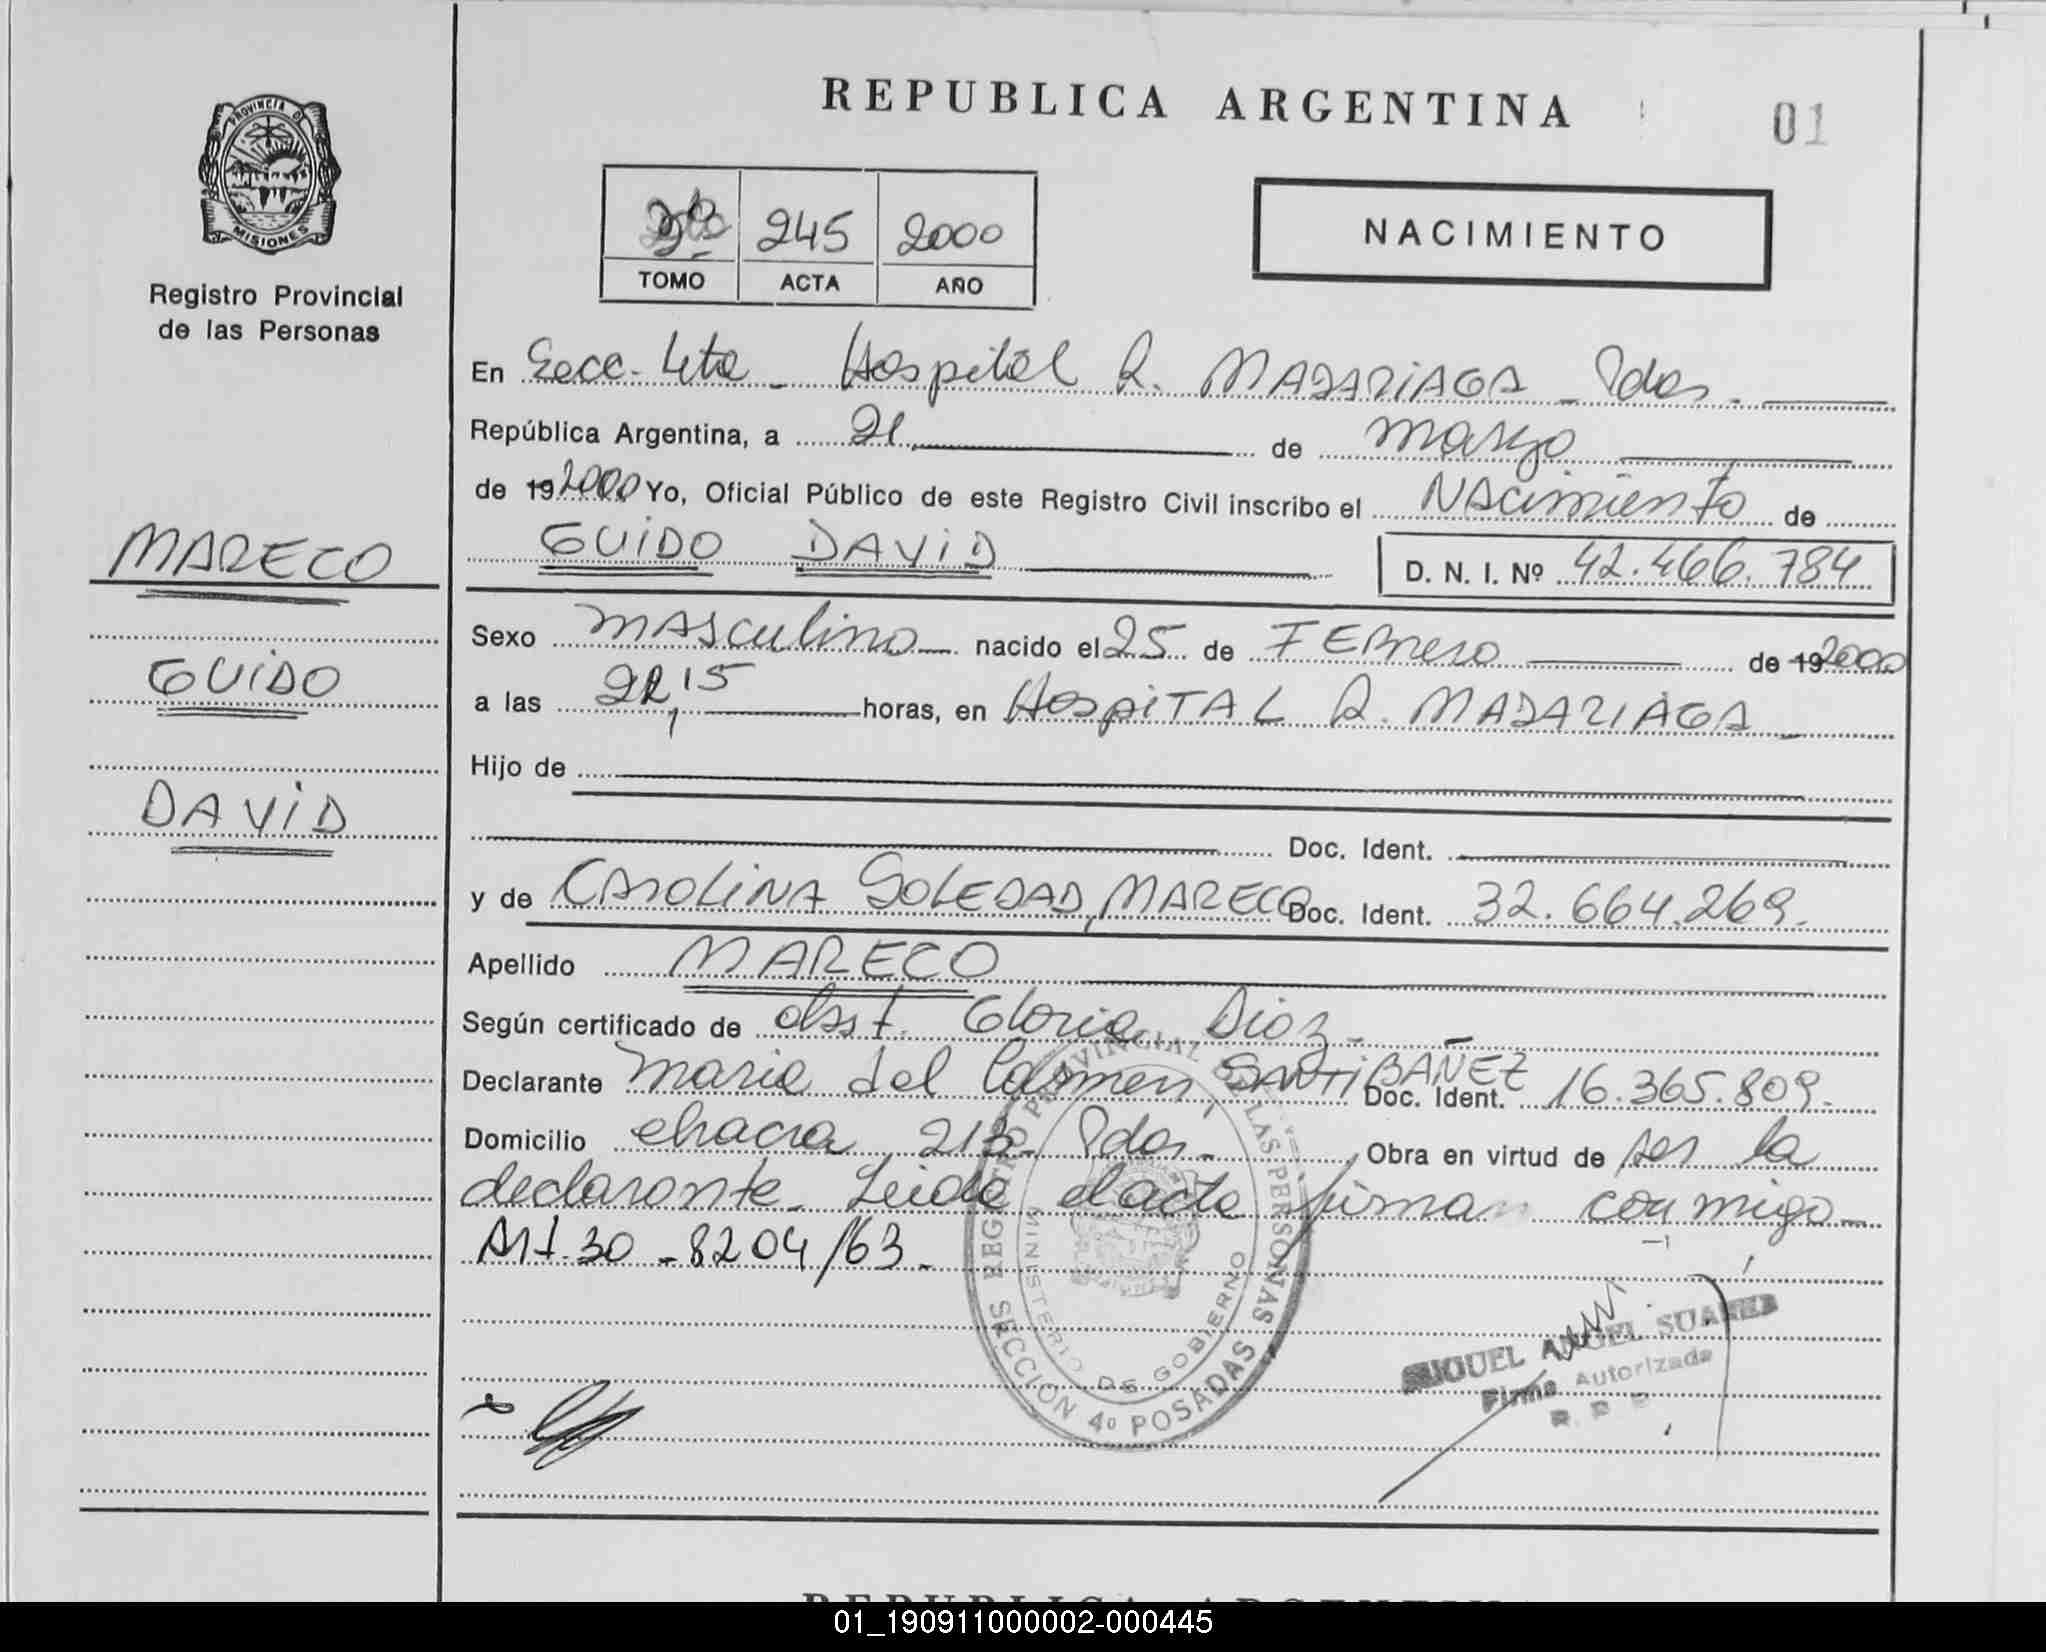 REPUBLICA ARGENTINA
01
PROVINCIA DE
MISIONES
Registro Provincial
de las Personas
245 2000
TOMO ACTA AÑO
NACIMIENTO
En Secc. 4ta - Hospital R. MADARIAGA - Pdas.
República Argentina, a 21 de marzo
de 192000 Yo, Oficial Público de este Registro Civil inscribo el NAcimiento de
GUIDO DAVID D. N. I. Nº 42.466.784
MARECO
GUIDO
DAVID
Sexo MAsculino nacido el 25 de FEBrero de 192000
a las 22,15 horas, en HospiTAL R. MADARIAGA
Hijo de
Doc. Ident.
y de CAROLINA SOLEDAD, MARECO Doc. Ident. 32.664.269.
Apellido MARECO
Según certificado de obst. Gloria Dioz.
Declarante Maria del Carmen, SANTIBAÑEZ Doc. Ident. 16.365.809.
Domicilio chacra 213 Pdas. Obra en virtud de ser la
declarante. Leida el acta firman conmigo
Art. 30 - 8204/63.
REGISTRO PROVINCIAL DE LAS PERSONAS
MINISTERIO DE GOBIERNO
SECCIÓN 4º POSADAS
MIGUEL ANGEL SUAREZ
Firma Autorizada
R. P. P.
REPUBLICA ARGENTINA
01_190911000002-000445